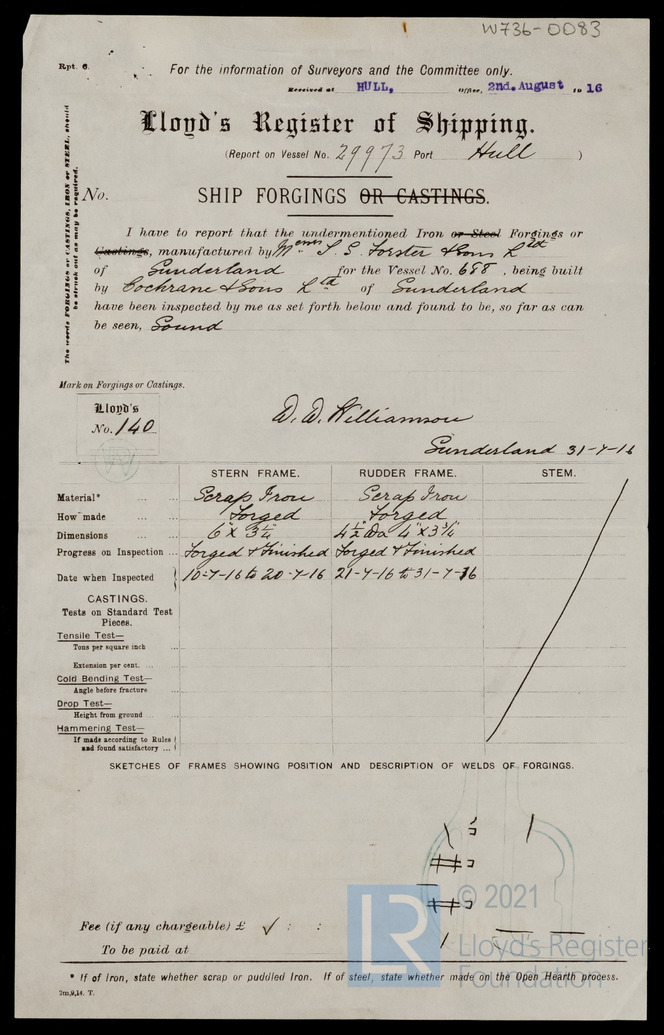 W736-0083
Rpt. 6.
For the information of Surveyors and the Committee only.
Received at HULL, Office, 2nd. August 1916
Lloyd's Register of Shipping.
(Report on Vessel No. 29973 Port Hull )
No. SHIP FORGINGS OR CASTINGS.
The words FORGINGS or CASTINGS, IRON or STEEL, should
be struck out as may be required.
I have to report that the undermentioned Iron or Steel Forgings or
Castings, manufactured by Messrs T. S. Forster & Sons Ltd
of Sunderland for the Vessel No. 688, being built
by Cochrane & Sons Ltd of Sunderland
have been inspected by me as set forth below and found to be, so far as can
be seen, Sound
Mark on Forgings or Castings.
Lloyd's
No. 140
W. D. Williamson
Sunderland 31-7-16
STERN FRAME. RUDDER FRAME. STEM.
Material* ... ... Scrap Iron Scrap Iron
How made ... Forged Forged
Dimensions ... ... 6" x 3¼" 4½" Da 4" x 3¾"
Progress on Inspection ... Forged & Finished Forged & Finished
Date when Inspected 10-7-16 to 20-7-16 21-7-16 to 31-7-16
CASTINGS.
Tests on Standard Test
Pieces.
Tensile Test—
Tons per square inch
Extension per cent. ...
Cold Bending Test—
Angle before fracture ...
Drop Test—
Height from ground ...
Hammering Test—
If made according to Rules
and found satisfactory ...
SKETCHES OF FRAMES SHOWING POSITION AND DESCRIPTION OF WELDS OF FORGINGS.
Fee (if any chargeable) £ ✓ : :
To be paid at
* If of Iron, state whether scrap or puddled Iron. If of steel, state whether made on the Open Hearth process.
2m,9,14. T.
LR
© 2021
Lloyd's Register
Foundation